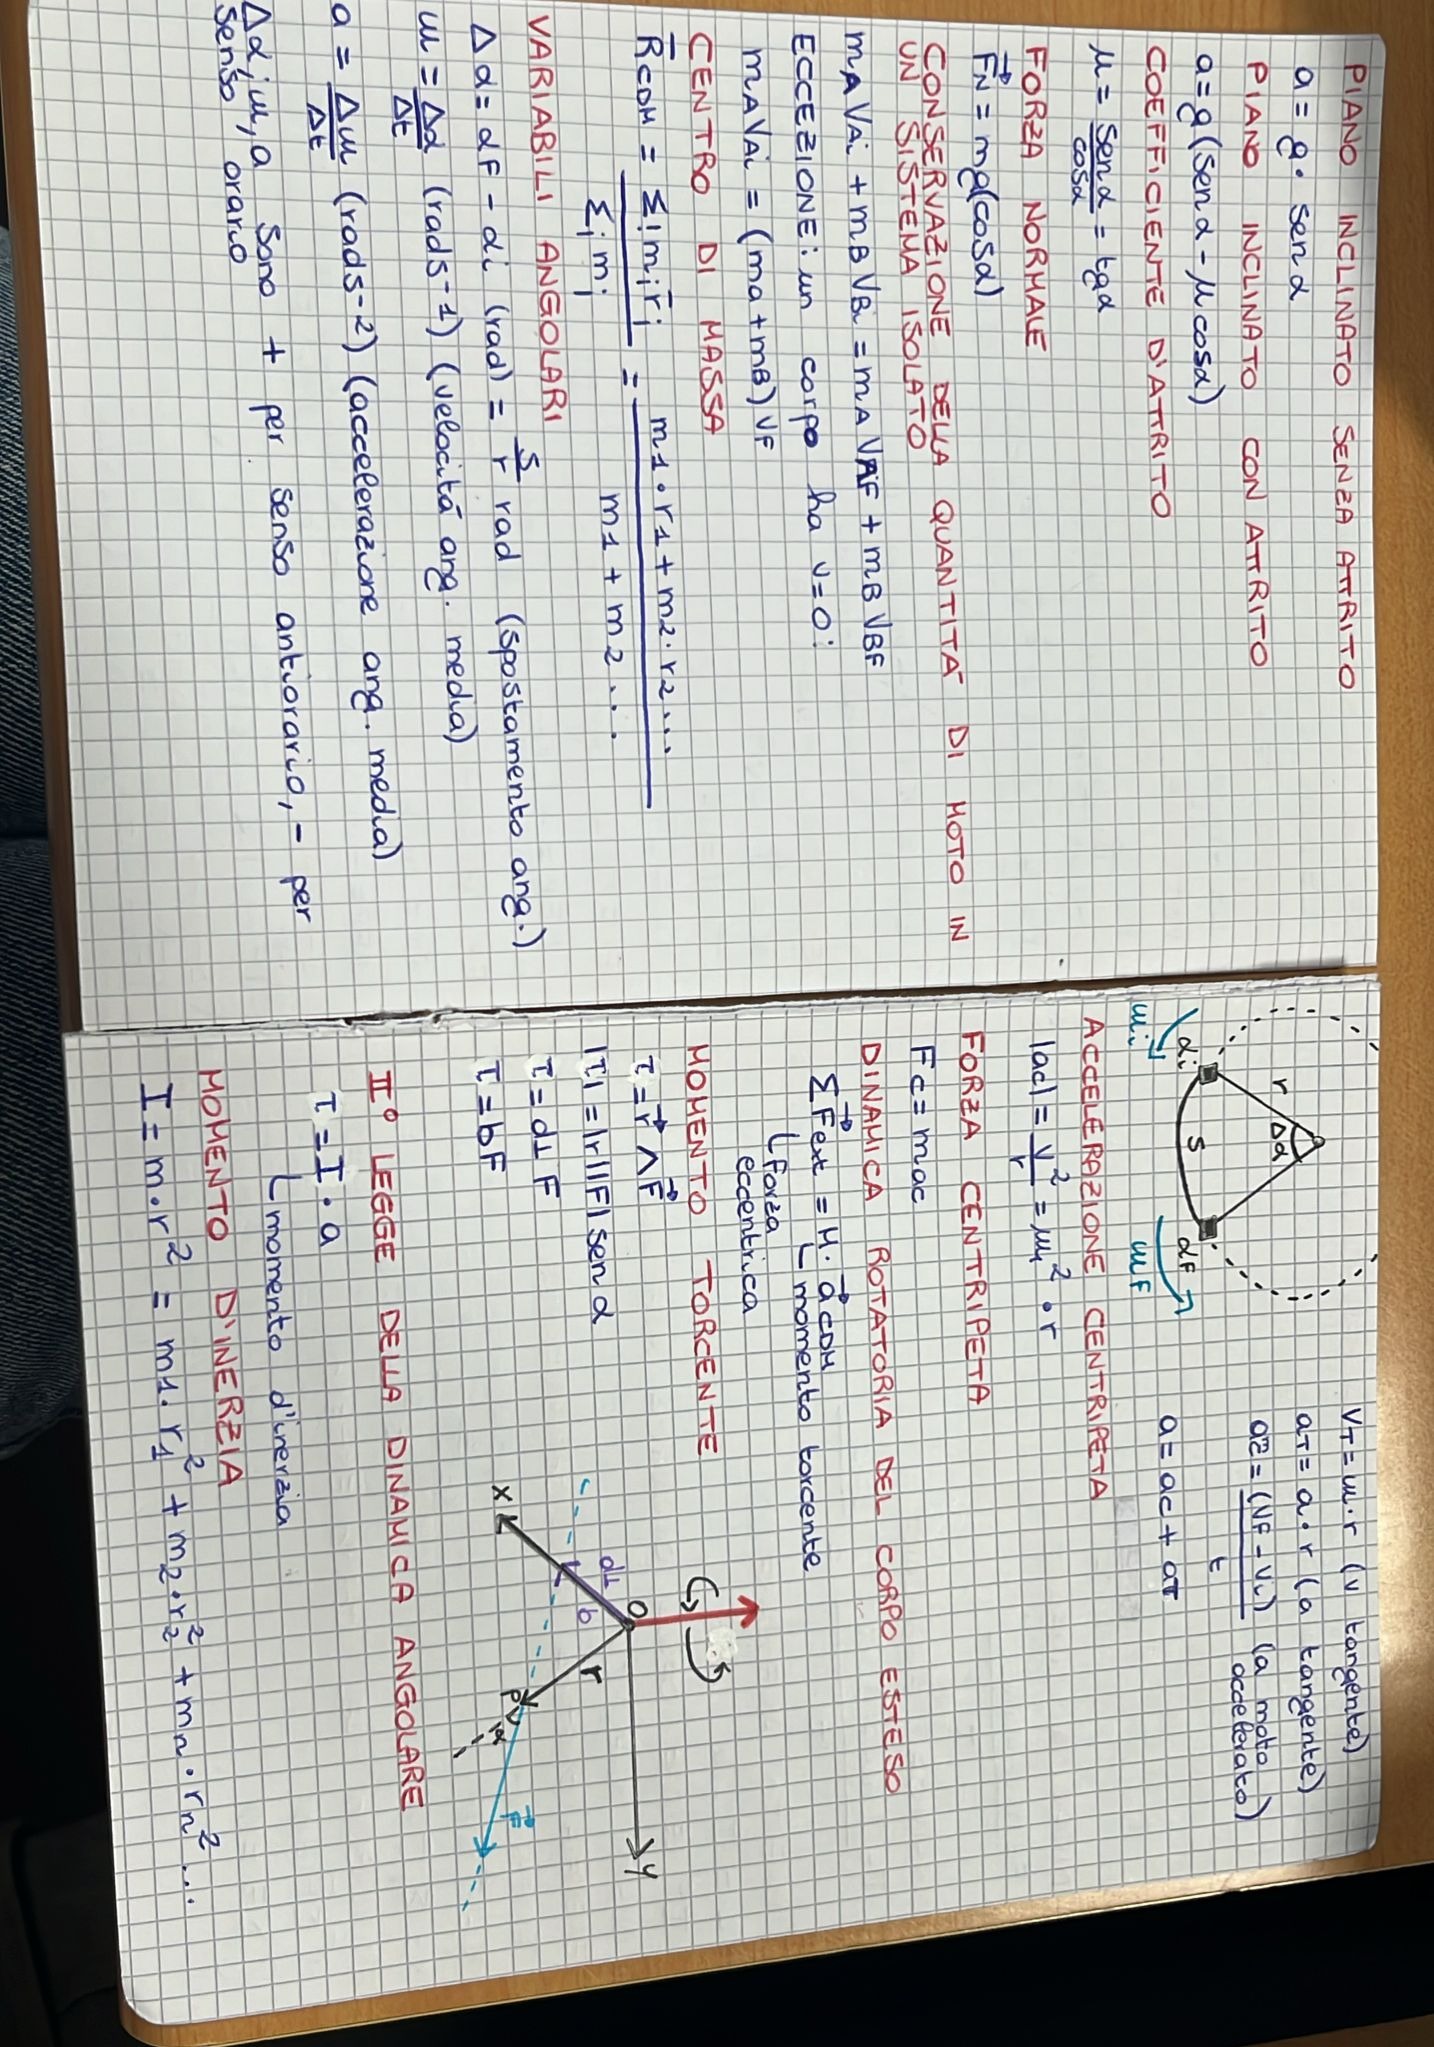 PIANO INCLINATO SENZA ATTRITO
a = g · sen α
PIANO INCLINATO CON ATTRITO
a = g (sen α - μ cos α)
COEFFICIENTE D'ATTRITO
μ = sen α / cos α = tg α
FORZA NORMALE
F⃗N = mg (cos α)
CONSERVAZIONE DELLA QUANTITA' DI MOTO IN
UN SISTEMA ISOLATO
mA VAi + mB VBi = mA VAF + mB VBF
ECCEZIONE: un corpo ha v=0:
mA VAi = (ma + mB) VF
CENTRO DI MASSA
R̄ CDM = Σi mi r̄i / Σi mi = m1 · r1 + m2 · r2 ... / m1 + m2 ...
VARIABILI ANGOLARI
Δα = αF - αi (rad) = s/r rad (spostamento ang.)
ω = Δα/Δt (rad s-1) (velocità ang. media)
a = Δω/Δt (rad s-2) (accelerazione ang. media)
Δα, ω, a sono + per senso antiorario, - per
senso orario
r Δα
αi s αF
ωi ωF
VT = ω · r (v tangente)
aT = a · r (a tangente)
a = (VF - Vi) / t (a moto
accelerato)
a = ac + aT
ACCELERAZIONE CENTRIPETA
|ac| = v²/r = ω² · r
FORZA CENTRIPETA
Fc = m ac
DINAMICA ROTATORIA DEL CORPO ESTESO
Σ F⃗ext = M · a⃗ CDM
momento torcente
forza
eccentrica
MOMENTO TORCENTE
τ = r⃗ ∧ F⃗
|τ| = |r||F| sen α
τ = d⊥ F
τ = bF
O
d⊥ b r
x y
P α F⃗
II° LEGGE DELLA DINAMICA ANGOLARE
τ = I · a
momento d'inerzia
MOMENTO D'INERZIA
I = m · r² = m1 · r1² + m2 · r2² + mn · rn² ...